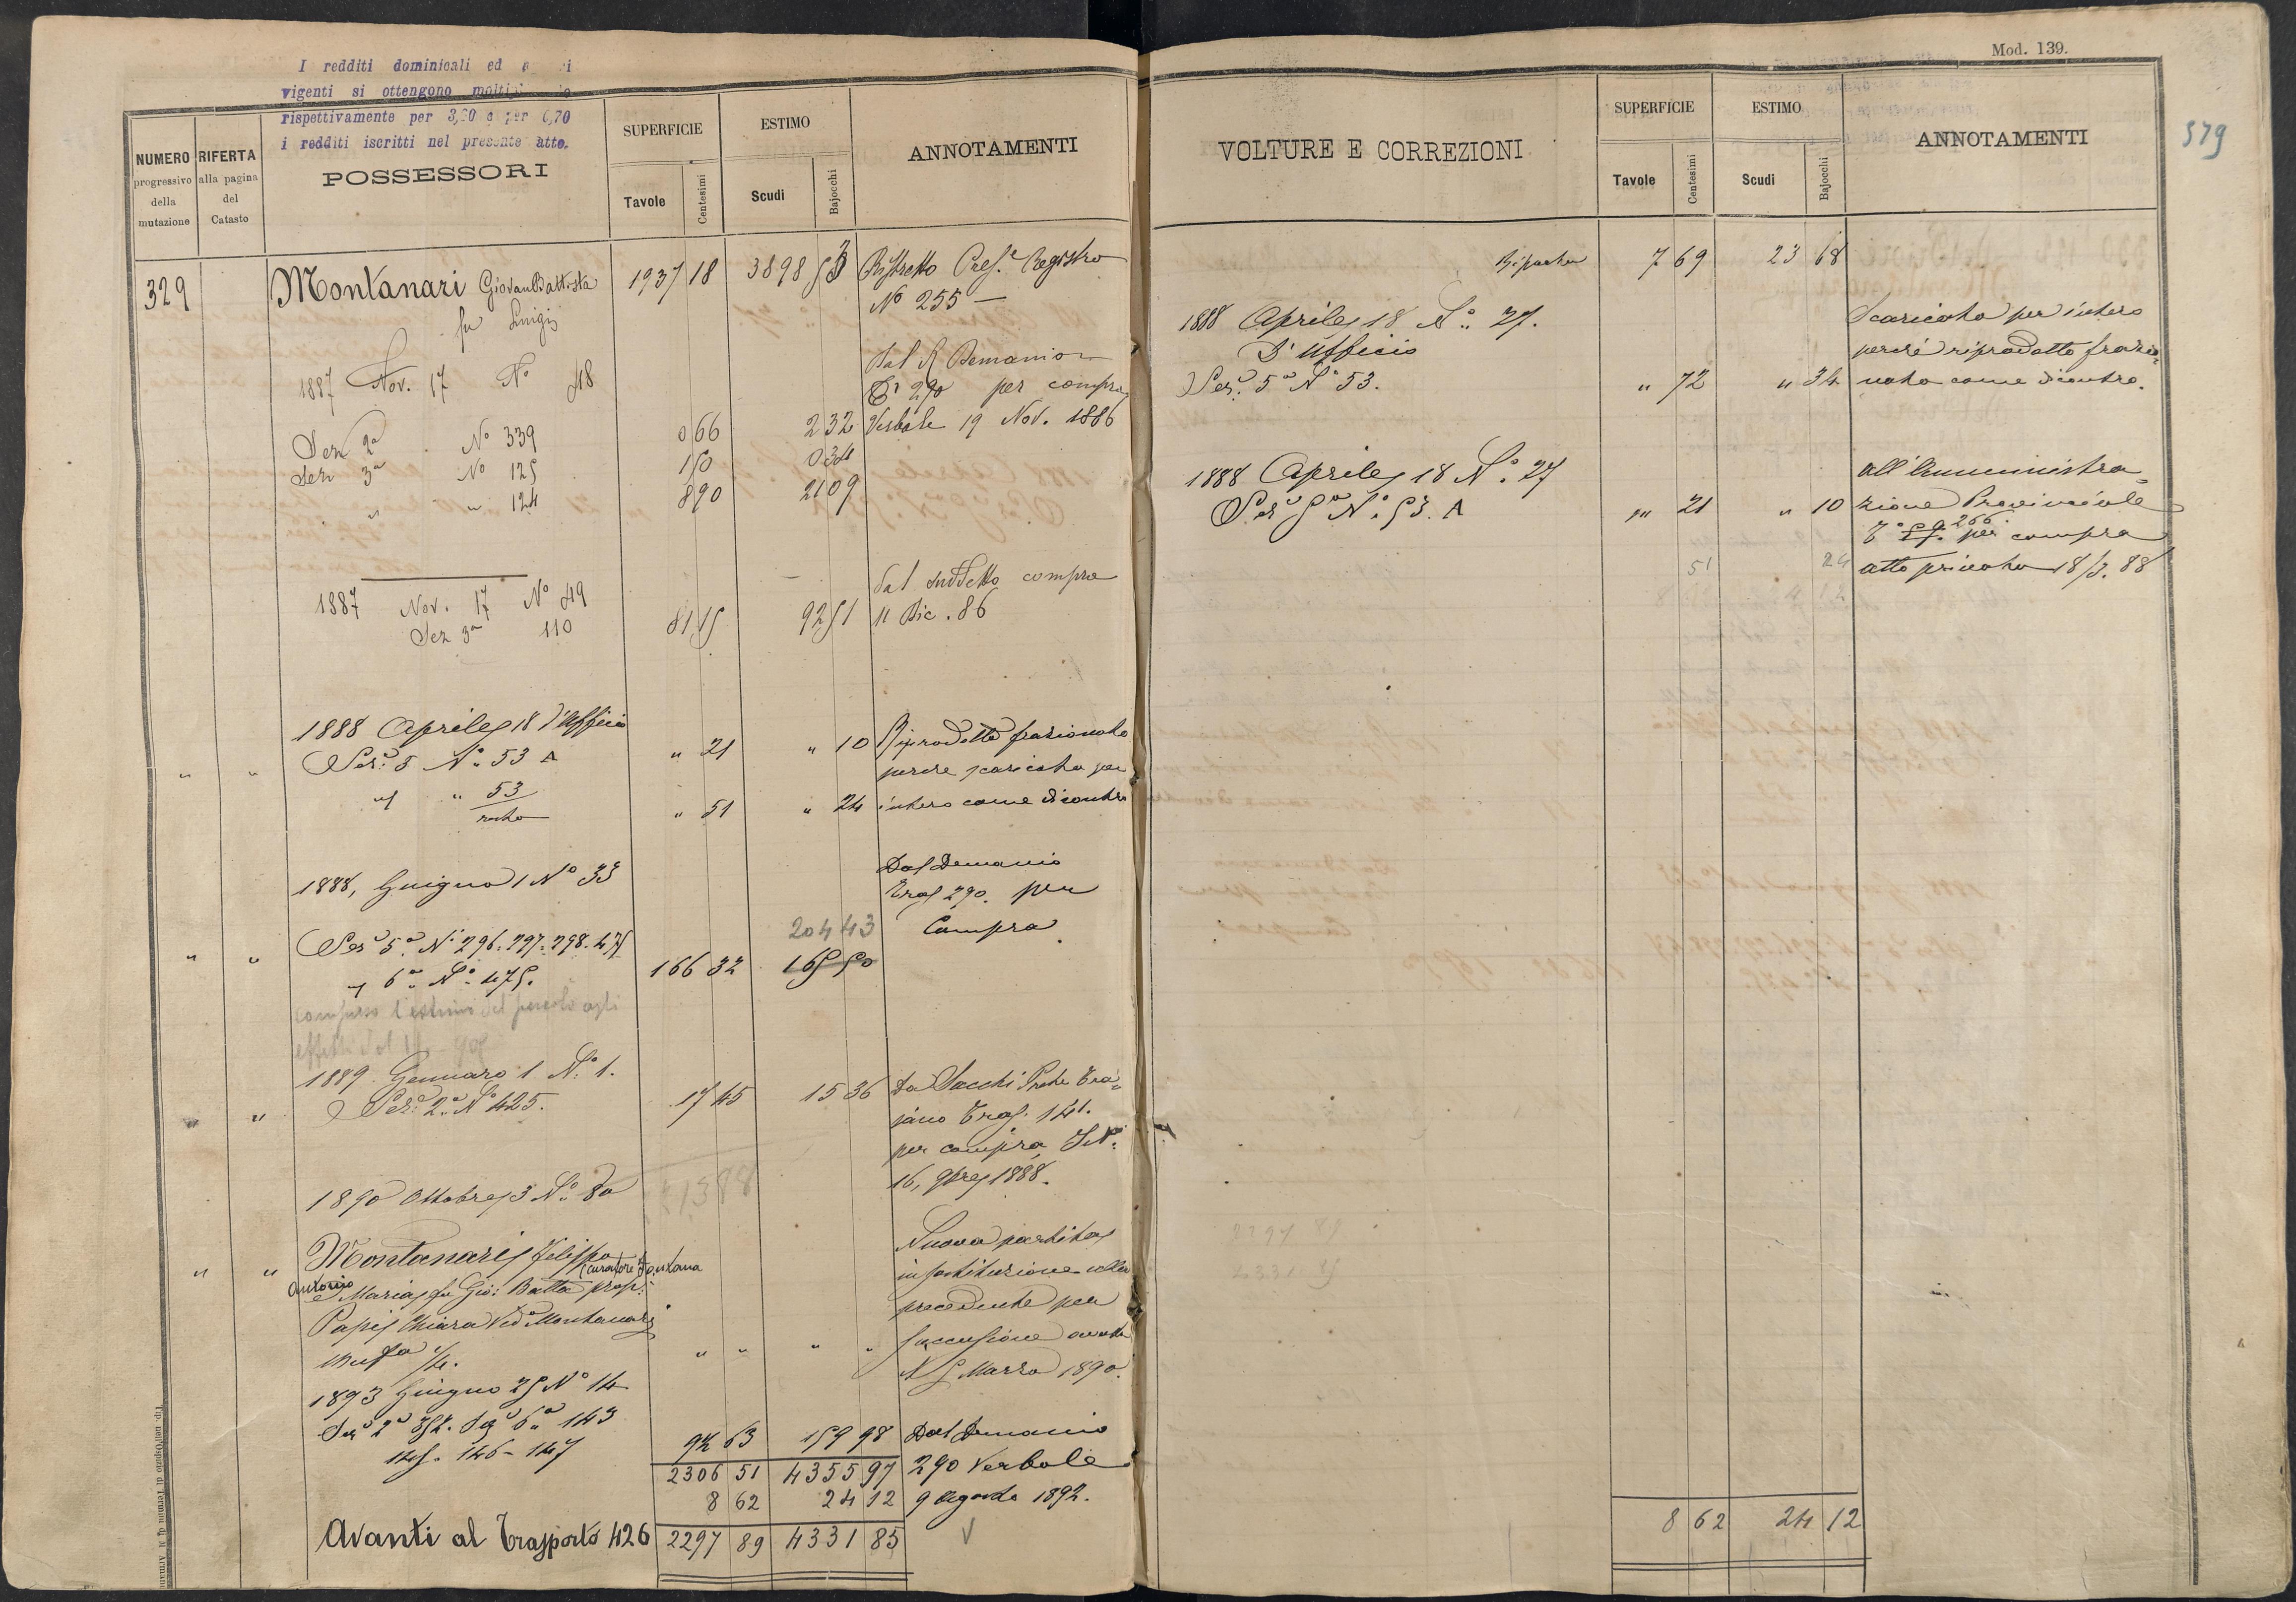 I redditi dominicali ed
vigenti si ottengono
rispettivamente per 3,20 e per 0,70
i redditi iscritti nel presente atto.
NUMERO progressivo della mutazione
RIFERTA alla pagina del Catasto
POSSESSORI
SUPERFICIE
Tavole
Centesimi
ESTIMO
Scudi
Bajocchi
ANNOTAMENTI
329 Montanari Giovan Battista 1937 18 3898 53 Ristretto Pres.e Registro
fu Luigi N° 255 —
Dal R Demanio
1887 Nov. 17 N° 48 Tr 290 per compra
Verbale 19 Nov. 1886
Sez 2a N° 339 0 66 2 32
Sez 3a N° 125 1 50 0 34
" " 124 8 90 21 09
dal suddetto compra
1887 Nov. 17 N° 49 11 Dic. 86
Sez 3a 110 81 15 92 51
1888 Aprile 18 d'Ufficio
" " Sez. 5 N° 53 A " 21 " 10 Riprodotto frazionato
perche scaricato per
" " 53 resto " 51 " 24 intero come dicontro
1888, Giugno 1 N° 33 Dal Demanio
Tras 290. per
20443 Compra
" " Sez 5a N° 296. 297. 298. 474
" 6a N° 475. 166 32 165 50
compreso l'estimo del agli
effetti dal
1889 Gennaro 1 N° 1.
" " Sez. 2a N° 425. 17 45 15 36 Da Sacchi Prete Tra=
jano Tras. 141.
per compra
16, 9bre 1888.
1890 Ottobre 3 N° 80 1388
" " Montanari Filippo Nuova partita
(curatore Fontana
Antonio in sostituzione alla
e Maria fu Gio: Batta prop: precedente per
Papi Chiara Ved. Montanari " " " " successione
Usufa 1/4. N 5 Marzo 1890.
1893 Giugno 25 N° 14
Sez 2a 352. Sez 6a 143
145. 146 - 147 94 63 159 98 Dal Demanio
2306 51 4355 97 290 Verbale
8 62 24 12 9 Agosto 1892.
Avanti al Trasporto 426 2297 89 4331 85 V
Mod. 139.
579
VOLTURE E CORREZIONI
SUPERFICIE
Tavole
Centesimi
ESTIMO
Scudi
Bajocchi
ANNOTAMENTI
Riporto 7 69 23 68
1888 Aprile 18 N° 27. Scaricato per intero
D'Ufficio perchè riprodotto frazio=
Sez. 5a N° 53. " 72 " 34 nato come dicontro.
1888 Aprile 18 N° 27 All'Amministra=
Sez 5a N° 53. A " 21 " 10 zione Provinciale
T° 266. per compra
51 24 atto privato 18/3. 88
2297 89
4331 85
8 62 24 12